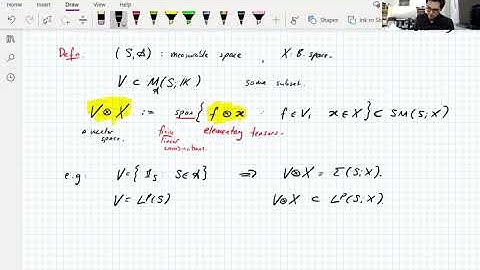 File Home Insert Draw View Help
Defn: (S, 𝒜) : measurable space , X : B. space.
V ⊂ M_𝒜(S; 𝕂) some subset.
V ⊗ X := span { f ⊗ x : f ∈ V, x ∈ X } ⊂ SM(S; X)
a vector space. finite linear combinations. elementary tensors.
e.g: V = { 𝟙_S : S ∈ 𝒜 } ⟹ V ⊗ X = Σ(S; X).
V = L^p(S) V ⊗ X ⊂ L^p(S; X).